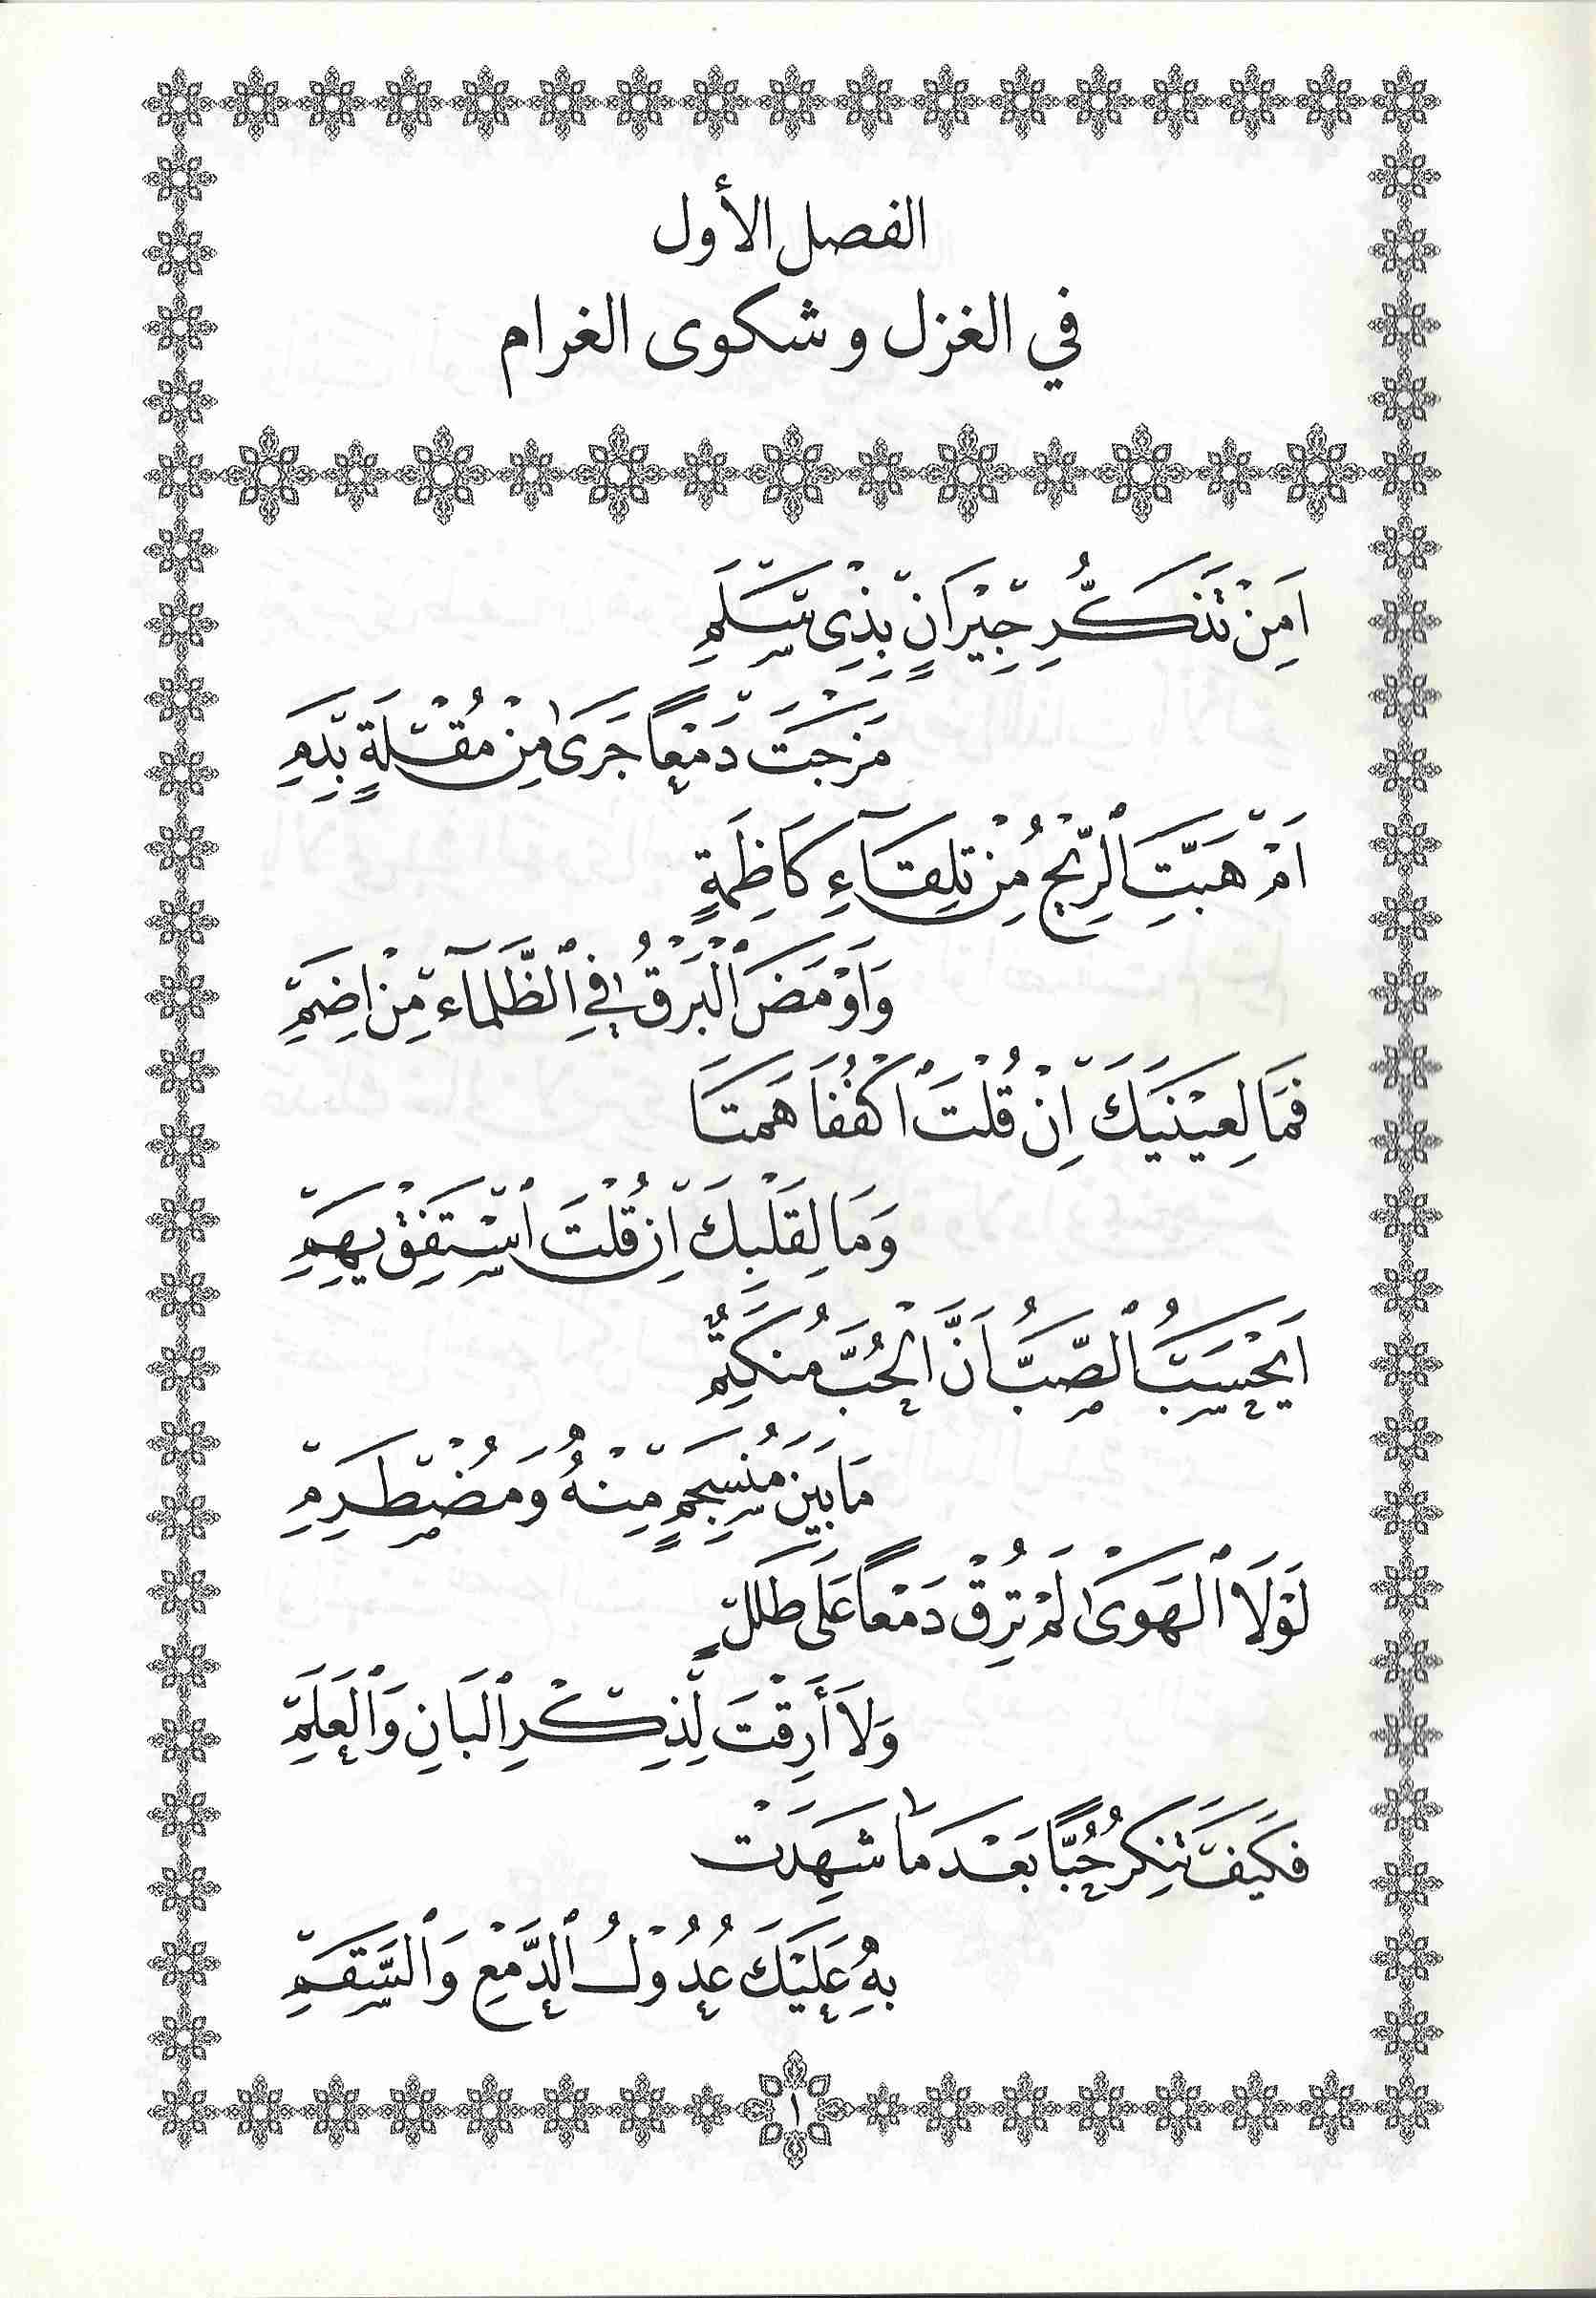 الفصل الأول
في الغزل و شكوى الغرام
اَمِنْ تَذَكُّرِ جِيْرَانٍ بِذِى سَلَمِ
مَزَجْتَ دَمْعًا جَرَىٰ مِنْ مُقْلَةٍ بِدَمِ
اَمْ هَبَّتِ الرِّيْحُ مِنْ تِلِقَآءِ كَاظِمَةٍ
وَاَوْمَضَ الْبَرْقُ فِي الظَّلمآءِ مِنْ اِضَمِ
فَمَا لِعَيْنَيْكَ اِنْ قُلْتَ اكْفُفَا هَمَتَا
وَمَا لِقَلْبِكَ اِنْ قُلْتَ اسْتَفِقْ يَهِمِ
اَيَحْسَبُ الصَّبُّ اَنَّ الْحُبَّ مُنكَتِمٌ
مَا بَيْنَ مُنْسَجِمٍ مِنْهُ وَمُضْطَرِمِ
لَوْلَا الْهَوَىٰ لَمْ تُرِقْ دَمْعًا عَلَى طَلَلٍ
وَلَا أَرِقْتَ لِذِكْرِ الْبَانِ وَالْعَلَمِ
فَكَيْفَ تُنْكِرُ حُبًّا بَعْدَ مَا شَهِدَتْ
بِهِ عَلَيْكَ عُدُوْلُ الدَّمْعِ وَالسَّقَمِ
١